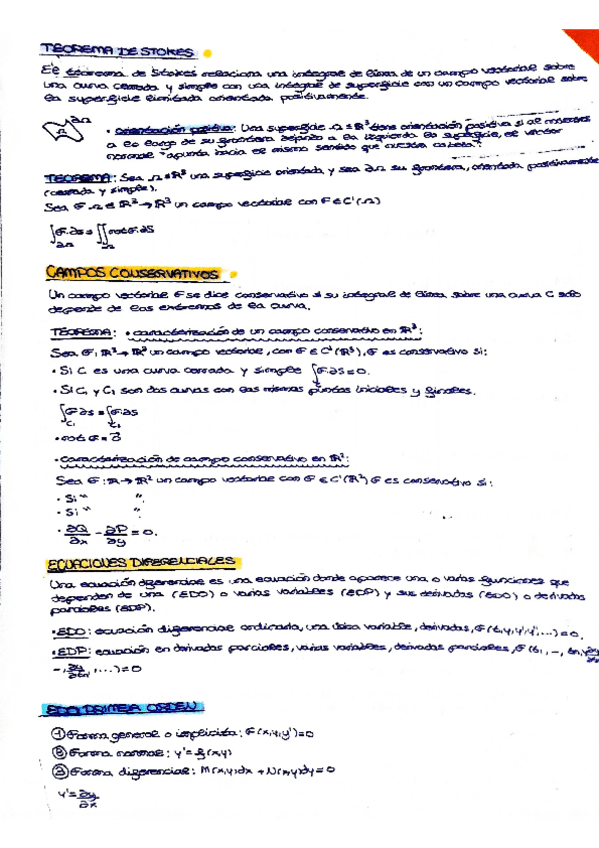 TEOREMA DE STOKES
El teorema de Stokes relaciona una integral de línea de un campo vectorial sobre
una curva cerrada y simple con una integral de superficie con un campo vectorial sobre
la superficie limitada orientada positivamente.
∂Ω
Ω
· Orientación positiva: Una superficie Ω ⊆ ℝ³ tiene orientación positiva si al movernos
a lo largo de su frontera dejando a la izquierda la superficie, el vector
normal "apunta hacia el mismo sentido que nuestra cabeza".
TEOREMA: Sea Ω ⊆ ℝ³ una superficie orientada y sea ∂Ω su frontera, orientada positivamente
(cerrada y simple).
Sea F: Ω ⊆ ℝ³ → ℝ³ un campo vectorial con F ∈ C¹(Ω)
∫F.∂s = ∬rot F.dS
∂Ω Ω
CAMPOS CONSERVATIVOS
Un campo vectorial F se dice conservativo si su integral de línea sobre una curva C sólo
depende de los extremos de la curva.
TEOREMA: · caracterización de un campo conservativo en ℝ³:
Sea F: ℝ³ → ℝ³ un campo vectorial, con F ∈ C¹(ℝ³), F es conservativo si:
· Si C es una curva cerrada y simple ∫F.∂s = 0.
· Si C₁ y C₂ son dos curvas con las mismas puntos iniciales y finales.
∫F∂s = ∫F.∂s
C₁ C₂
· rot F = 0⃗
· caracterización de campo conservativo en ℝ²:
Sea F: ℝ → ℝ² un campo vectorial con F ∈ C¹(ℝ²) F es conservativo si:
· Si " ".
· Si " ".
· ∂Q/∂x - ∂P/∂y = 0.
ECUACIONES DIFERENCIALES
Una ecuación diferencial es una ecuación donde aparece una o varias funciones que
dependen de una (EDO) o varias variables (EDP) y sus derivadas (EDO) o derivadas
parciales (EDP).
· EDO: ecuación diferencial ordinaria, una sola variable, derivadas, F(t,y,y',y'',...) = 0.
· EDP: ecuación en derivadas parciales, varias variables, derivadas parciales,
,...) = 0
EDO PRIMER ORDEN
① Forma general o implícita: F(x,y,y') = 0
② Forma normal: y' = f(x,y)
③ Forma diferencial: M(x,y)dx + N(x,y)dy = 0
y' = ∂y/∂x